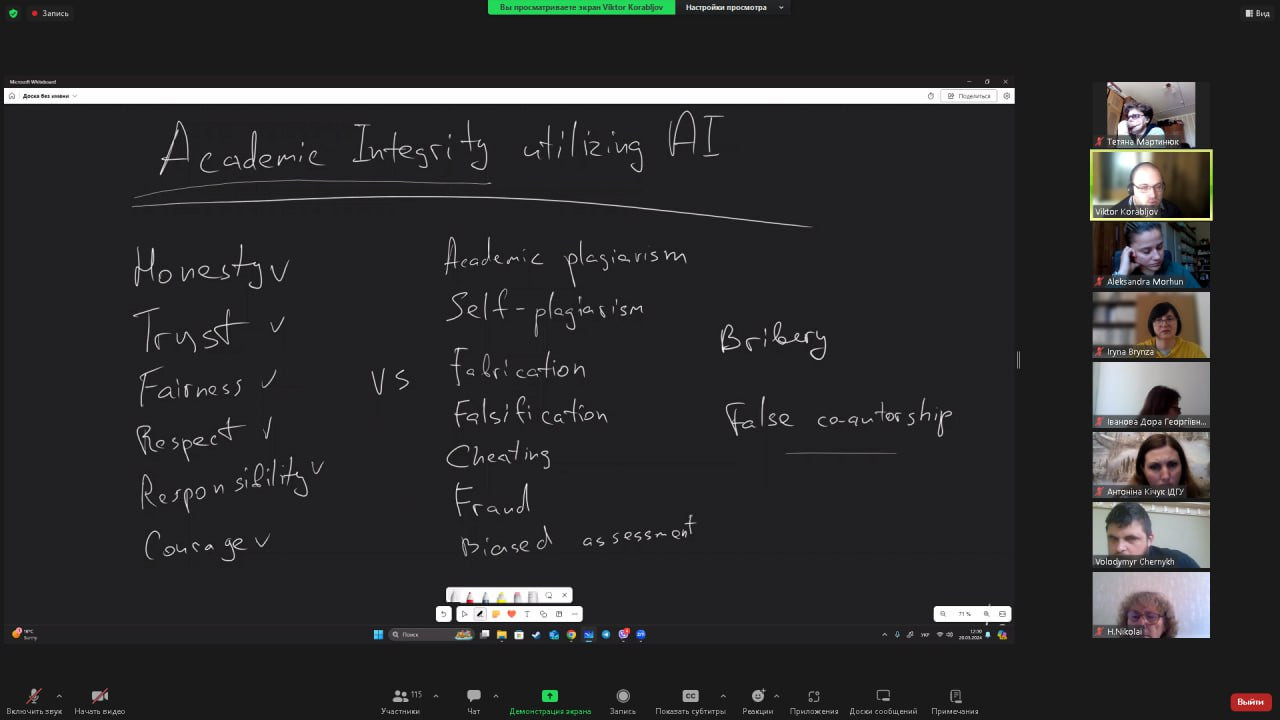 Запись
Вы просматриваете экран Viktor Korabljov
Настройки просмотра
Вид
Microsoft Whiteboard
Доска без имени
Поделиться
Academic Integrity utilizing AI
Honesty
Trust
Fairness
Respect
Responsibility
Courage
vs
Academic plagiarism
Self-plagiarism
Fabrication
Falsification
Cheating
Fraud
Biased assessment
Bribery
False co-autorship
71 %
Тетяна Мартинюк
Viktor Korabljov
Aleksandra Morhun
Iryna Brynza
Іванова Дора Георгіївн...
Антоніна Кічук ІДГУ
Volodymyr Chernykh
H.Nikolai
Sunny
Поиск
УКР
12:30
20.03.2024
Включить звук
Начать видео
115
Участники
Чат
Демонстрация экрана
Запись
CC
Показать субтитры
Реакции
Приложения
Доски сообщений
Примечания
Выйти